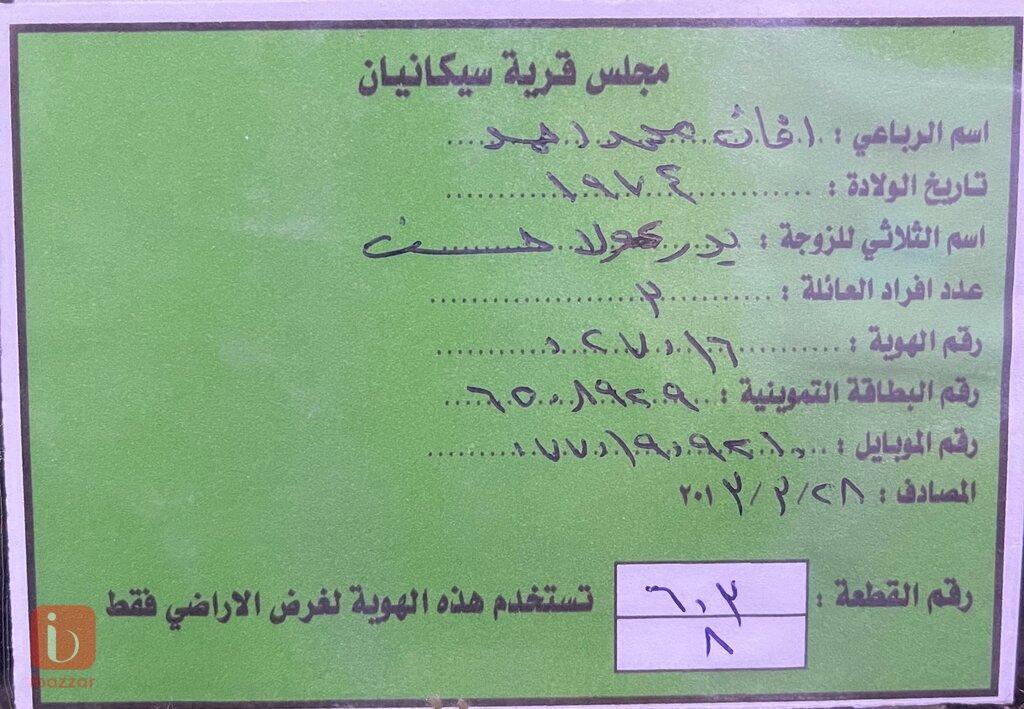 مجلس قرية سيكانيان
اسم الرباعي : محمد احمد
تاريخ الولادة : ١٩٧٤
اسم الثلاثي للزوجة : حسن
عدد افراد العائلة : ٣
رقم الهوية :
رقم البطاقة التموينية : ٦٥٠٨٩٢٩
رقم الموبايل : ٠٧٧٠١٩٠٩٢١٠
المصادف : ٢٨/٣/٢٠١٣
رقم القطعة : ٦٠٣ تستخدم هذه الهوية لغرض الاراضي فقط
٨
bazzar